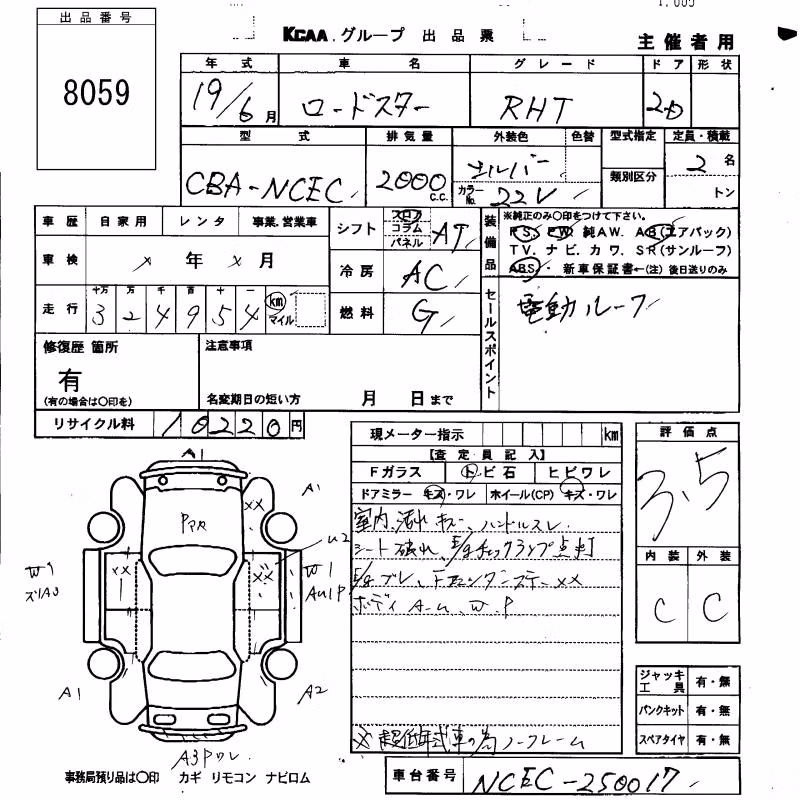 出品番号
8059
KCAA グループ 出品票
主催者用
年式 車名 グレード ドア 形状
19/6月 ロードスター RHT 2D
型式 排気量 外装色 色替 型式指定 定員・積載
CBA-NCEC 2000c.c. シルバー 類別区分 2名
カラーNo. 22V トン
車歴 自家用 レンタ 事業.営業車
シフト フロア コラム パネル AT
装備品 ※純正のみ〇印をつけて下さい。
PS. PW. 純AW. AB(エアバック)
TV. ナビ. カワ. SR(サンルーフ)
ABS・ 新車保証書←(注) 後日送りのみ
車検 × 年 × 月
冷房 AC
走行 十万 万 千 百 十 一
324954 km マイル
燃料 G
セールスポイント 電動ルーフ
修復歴 箇所 注意事項
有
(有の場合は〇印を) 名変期日の短い方 月 日まで
リサイクル料 10220円
現メーター指示 km
【査定員記入】
Fガラス トビ石 ヒビワレ
ドアミラー キズ・ワレ ホイール(CP) キズ・ワレ
室内、汚れ キズ、ハンドルスレ
シート破れ、E/gチェックランプ点灯
E/gブレ、
ボディ A-u、W、P
※超低年式車の為ノークレーム
評価点
3.5
内装 外装
C C
ジャッキ工具 有・無
パンクキット 有・無
スペアタイヤ 有・無
A1
A1
XX
PアR
U2
XX
XX
W1
W1
AU1P
A1
A2
A3Pワレ
事務局預り品は〇印 カギ リモコン ナビロム
車台番号 NCEC-250017